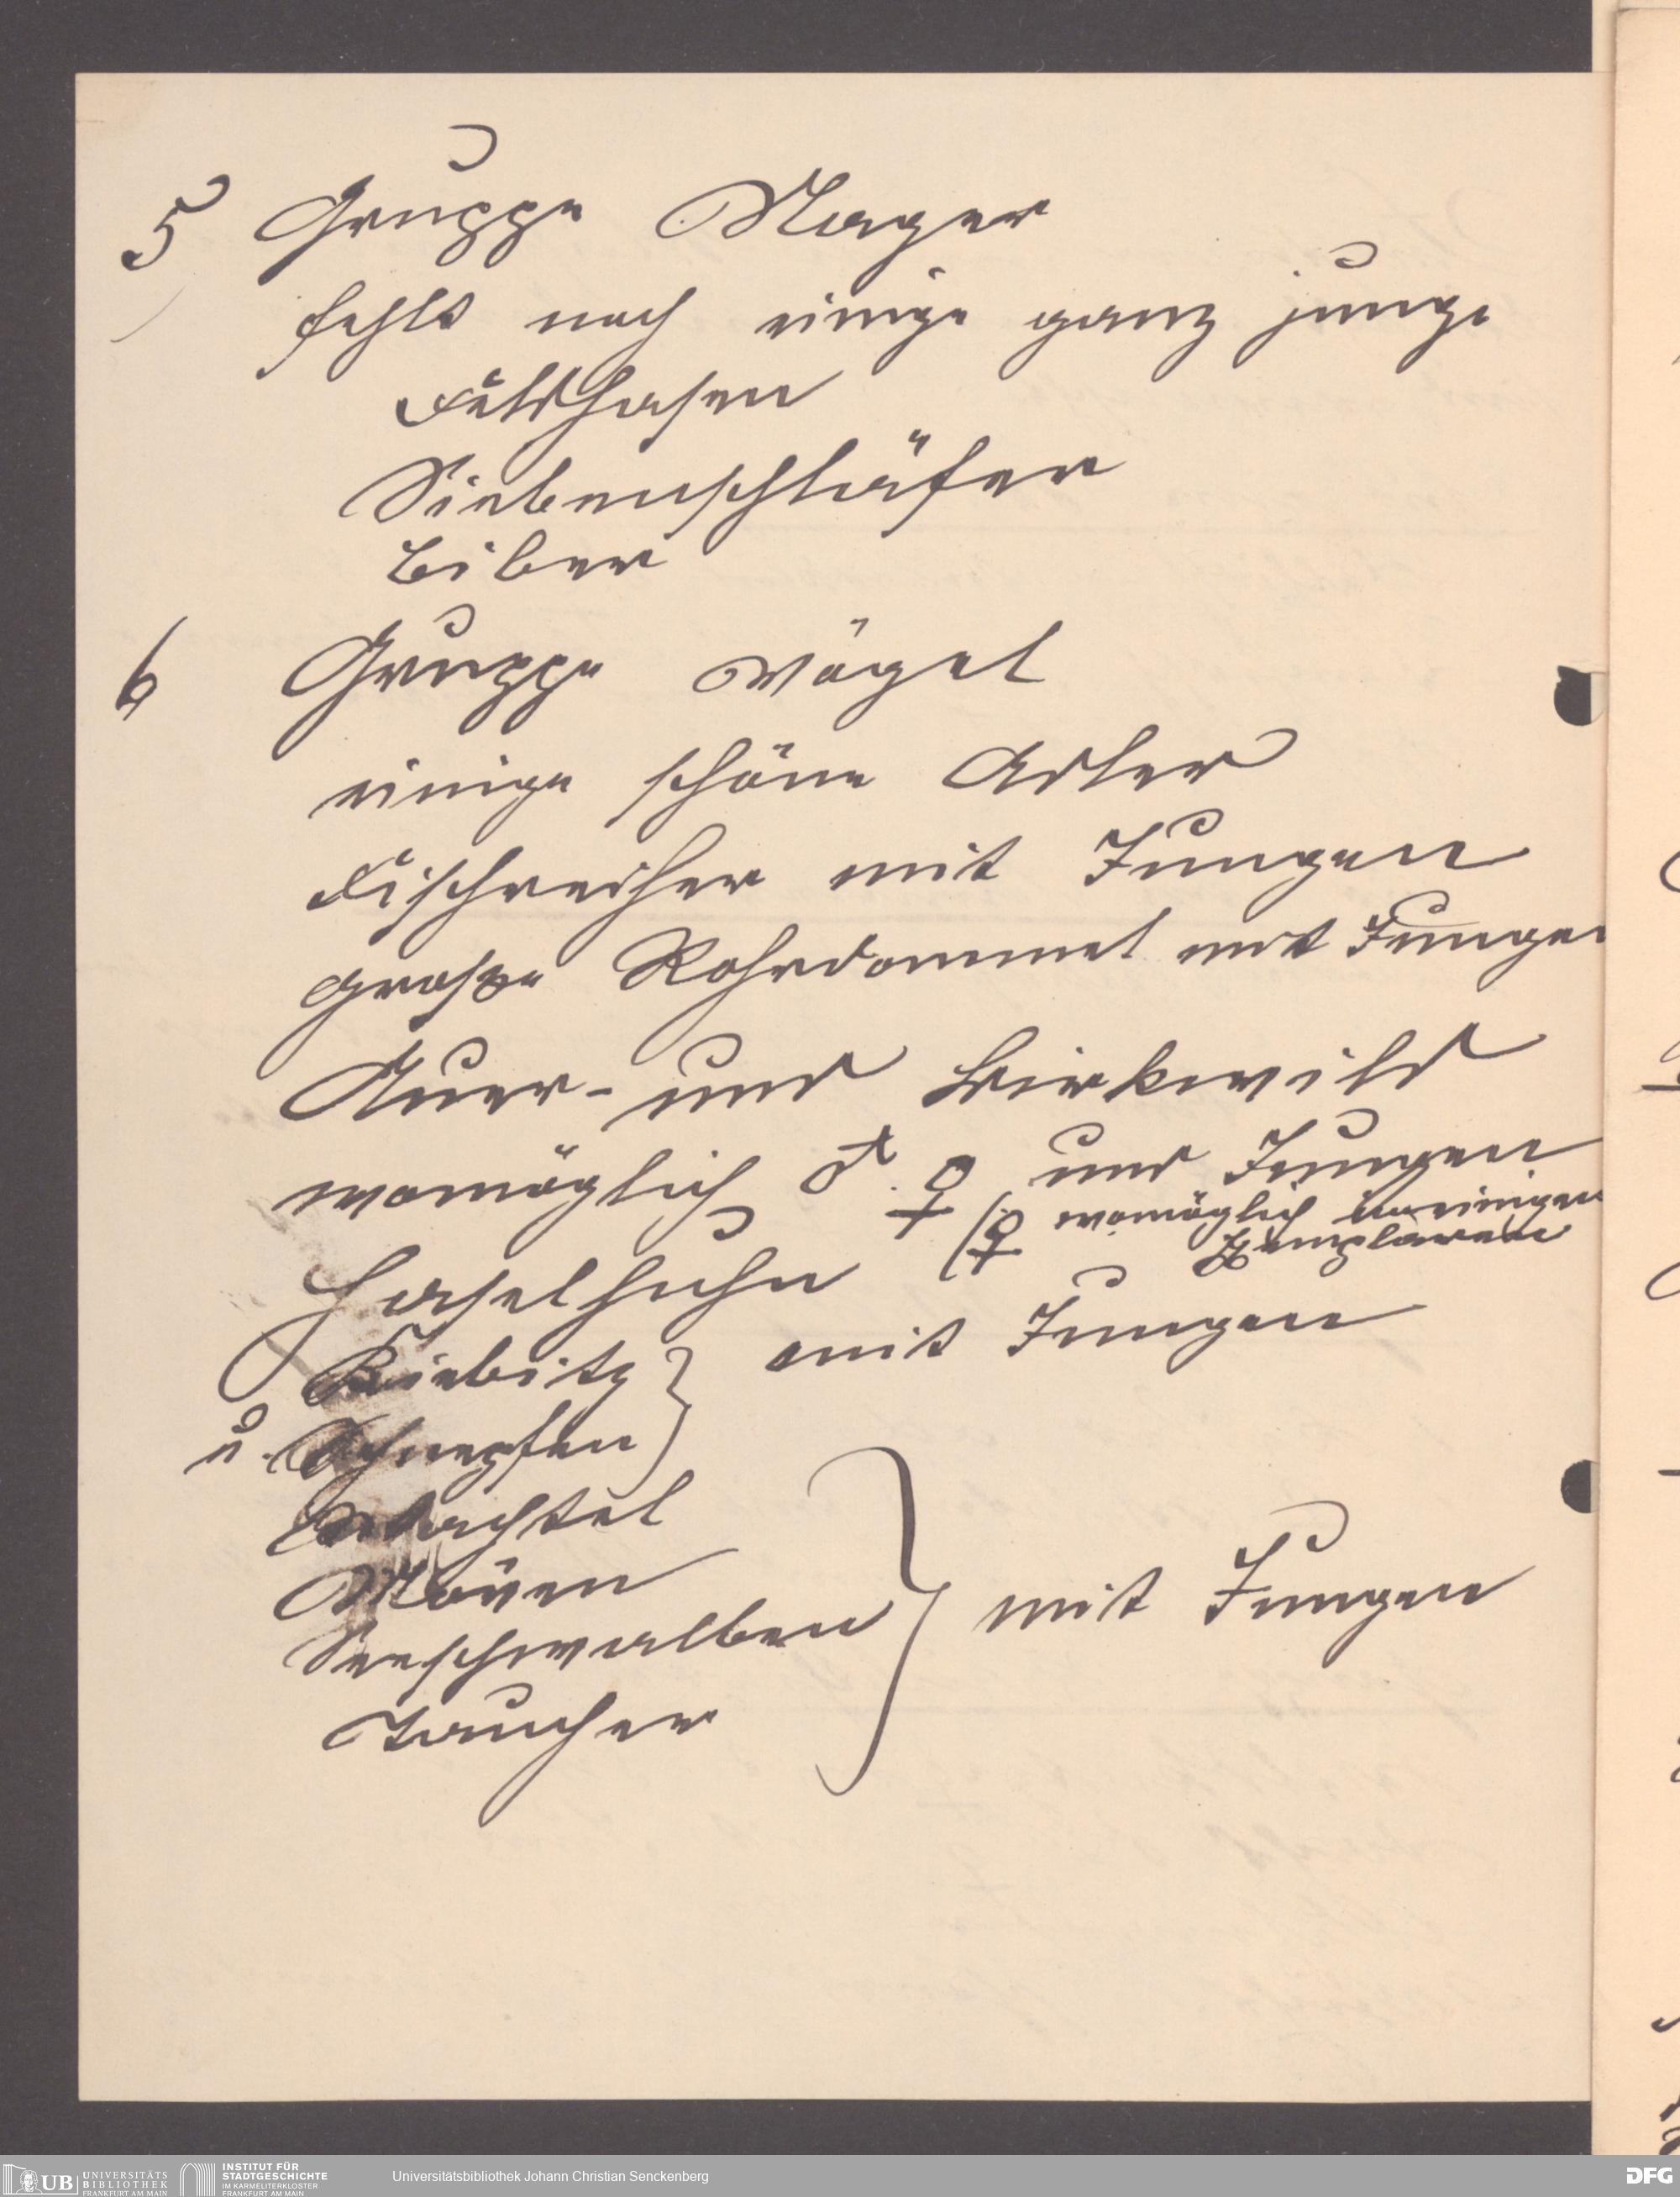 5 Gruppe Nager
fehlt noch einige ganz junge
Feldhasen
Siebenschläfer
Biber
6 Gruppe Vögel
einige schöne Adler
Fischreiher mit Jungen
große Rohrdommel mit Jungen
Auer- und Birkwild
womöglich ♂ ♀ und Jungen
(♀ womöglich in einigen
Exemplaren
Haselhuhn
Kiebitz } mit Jungen
u. Schnepfen
Wachtel
Möven
Seeschwalben } mit Jungen
Taucher
UB UNIVERSITÄTS
BIBLIOTHEK
FRANKFURT AM MAIN
INSTITUT FÜR
STADTGESCHICHTE
IM KARMELITERKLOSTER
FRANKFURT AM MAIN
Universitätsbibliothek Johann Christian Senckenberg
DFG